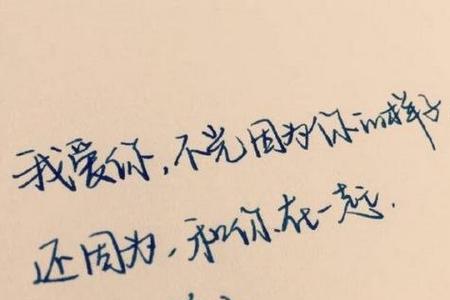 我爱你,不光因为你的样子
还因为,和你在一起.